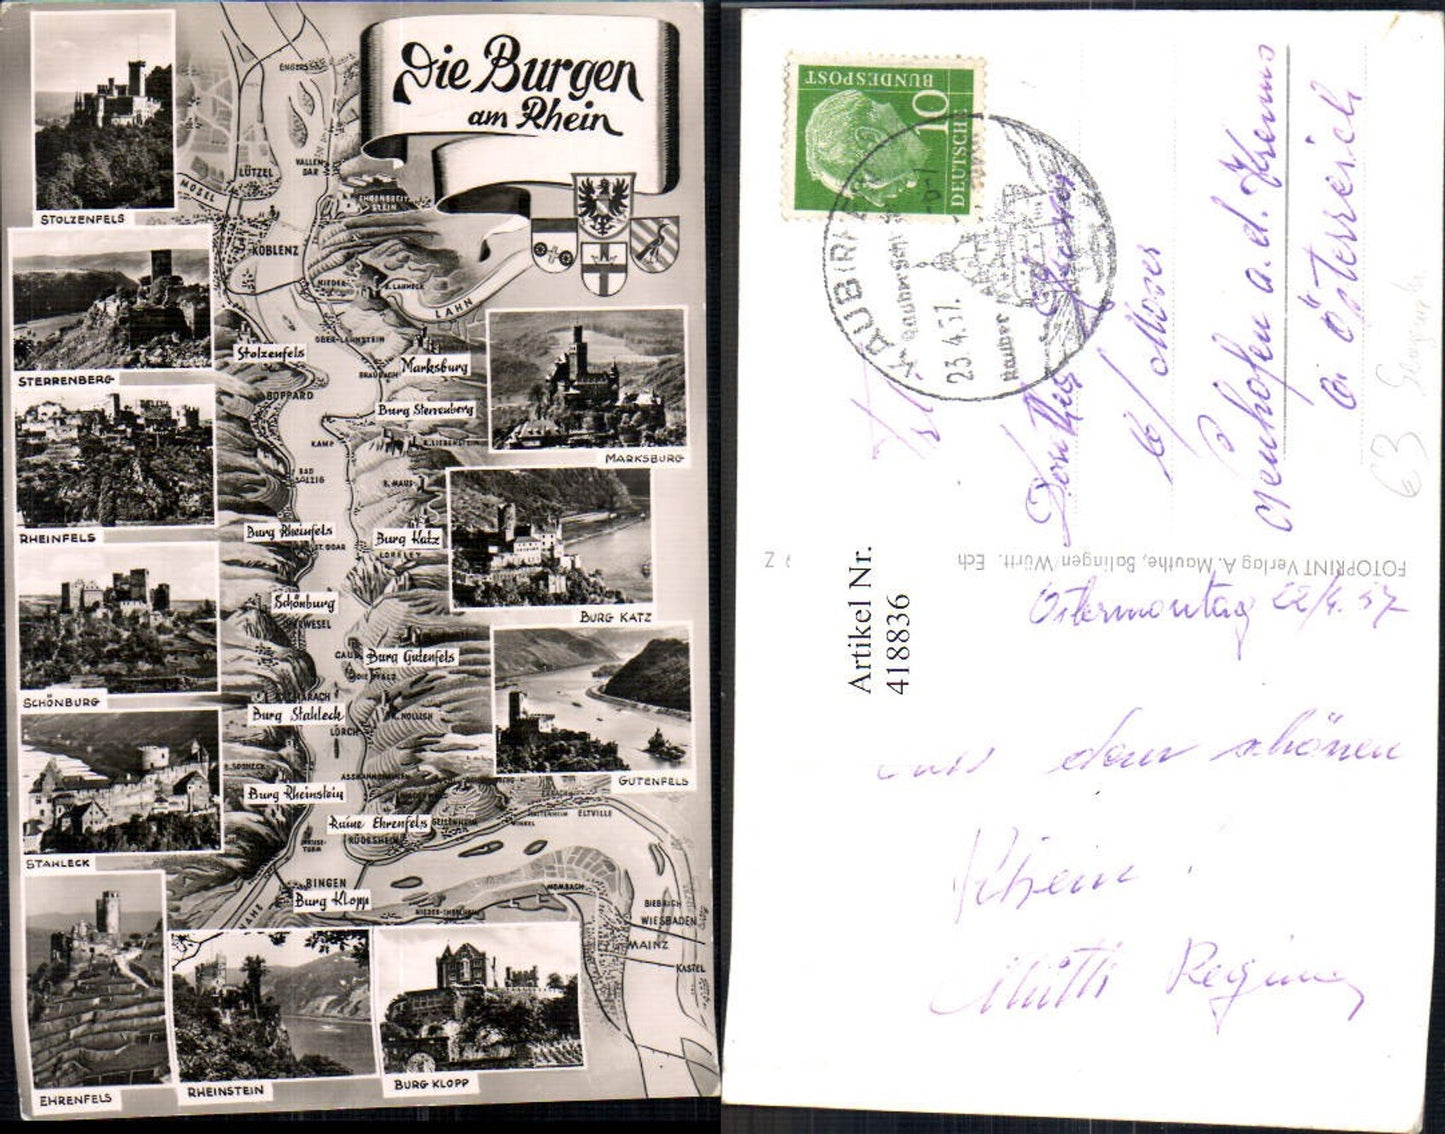 Die Burgen
am Rhein
ENGERS
LÜTZEL
VALLEN
DAR
MOSEL
EHRENBREIT
STEIN
KOBLENZ
B. LAHNECK
LAHN
OBER-LAHNSTEIN
Stolzenfels
Marksburg
BRAUBACH
BOPPARD
Burg Sterrenberg
KAMP
B. LIEBENSTEIN
BAD
SALZIG
B. MAUS
Burg Rheinfels
Burg Katz
ST. GOAR
LORELEY
Schönburg
OBERWESEL
CAUB
Burg Gutenfels
DIE PFALZ
BACHARACH
Burg Stahleck
R. NOLLICH
LORCH
B. SOONECK
ASSMANNSHAUSEN
Burg Rheinstein
Ruine Ehrenfels
GEISENHEIM
RÜDESHEIM
HATTENHEIM
ELTVILLE
WINKEL
MÄUSE-
TURM
BINGEN
Burg Klopp
NAHE
MOMBACH
NIEDER-INGELHEIM
BIEBRICH
WIESBADEN
MAINZ
KASTEL
STOLZENFELS
STERRENBERG
RHEINFELS
SCHÖNBURG
STAHLECK
EHRENFELS
RHEINSTEIN
BURG KLOPP
MARKSBURG
BURG KATZ
GUTENFELS
DEUTSCHE
BUNDESPOST
10
KAUB (RHEIN)
23.4.57.
b/ Moser
a. d. Krems
Österreich
€3
FOTOPRINT Verlag A. Mauthe, Balingen/Württ. Ech
Artikel Nr.
418836
Ostermontag 22/4. 57
aus dem schönen
Rhein